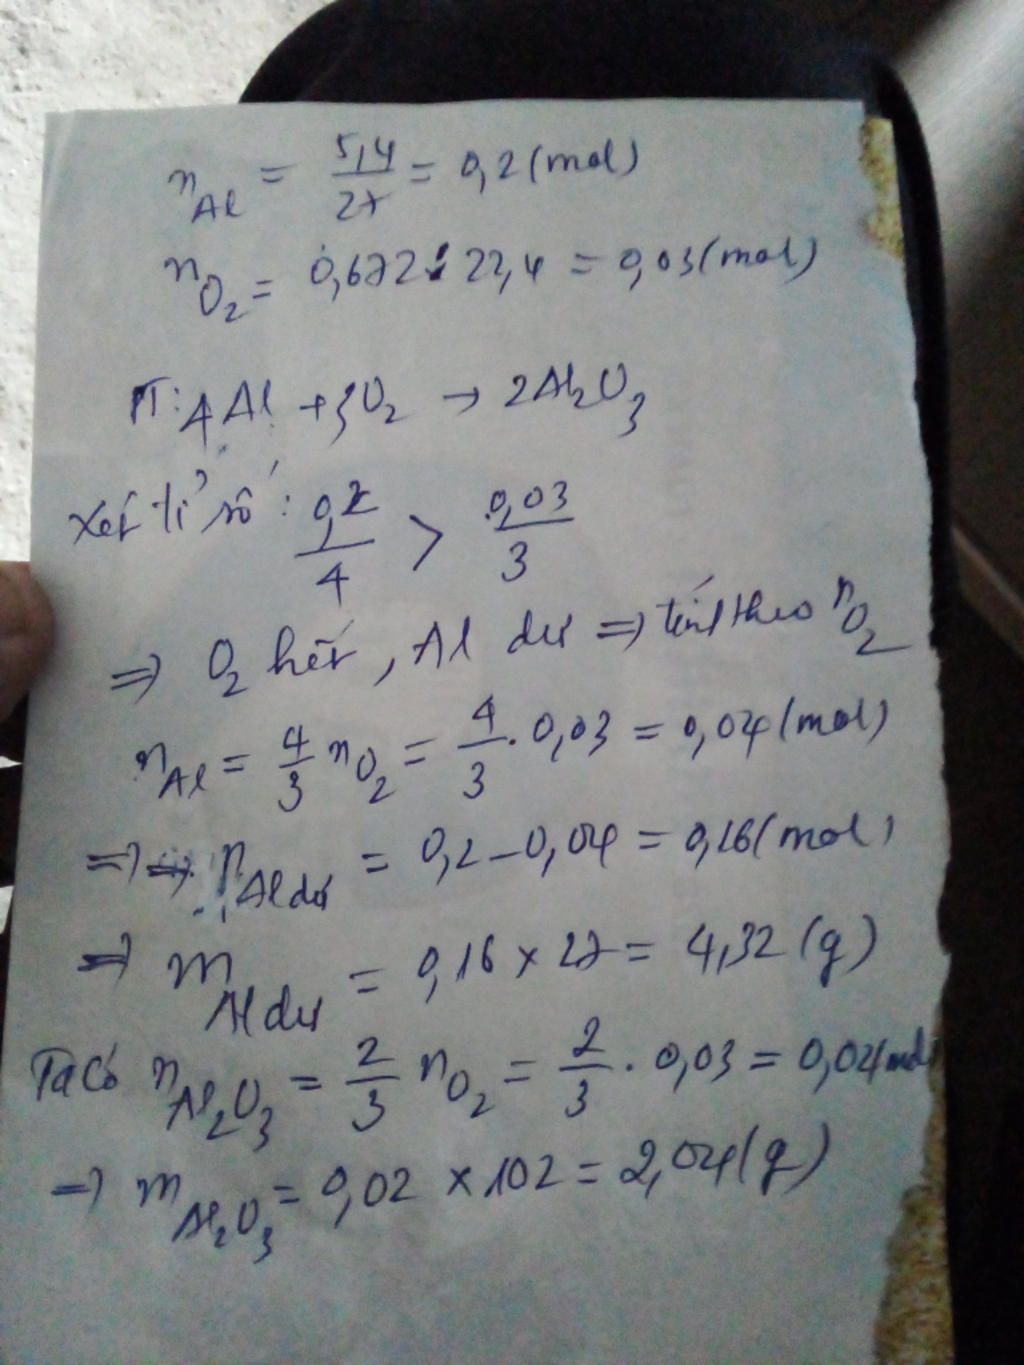 n Al = 5,4/27 = 0,2 (mol)
n O2 = 0,672 : 22,4 = 0,03 (mol)
PT: 4Al + 3O2 → 2Al2O3
Xét tỉ số: 0,2/4 > 0,03/3
⇒ O2 hết, Al dư ⇒ tính theo n O2
n Al = 4/3 n O2 = 4/3 . 0,03 = 0,04 (mol)
⇒ n Al dư = 0,2 - 0,04 = 0,16 (mol)
⇒ m Al dư = 0,16 x 27 = 4,32 (g)
Ta có n Al2O3 = 2/3 n O2 = 2/3 . 0,03 = 0,02 (mol
⇒ m Al2O3 = 0,02 x 102 = 2,04 (g)